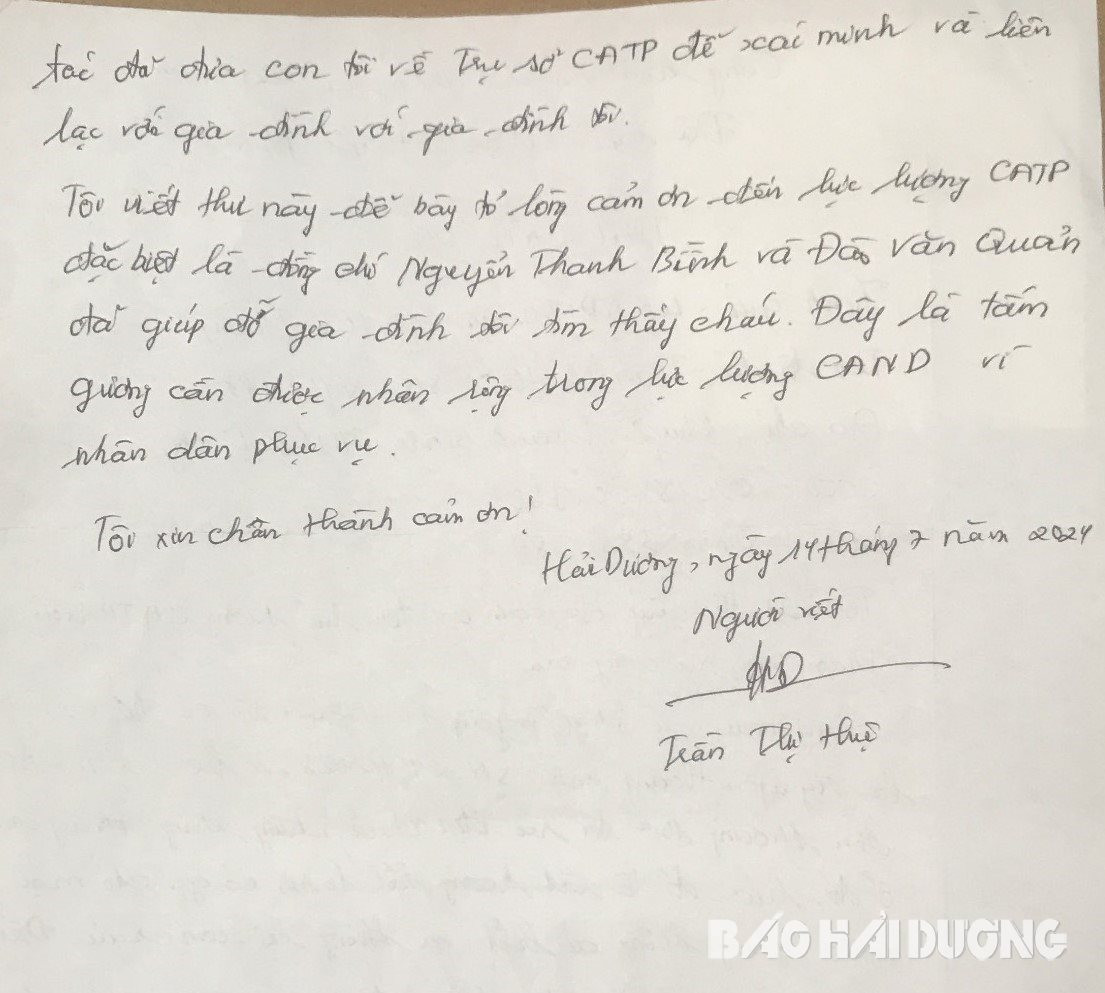 tác đã đưa con tôi về Trụ sở CATP để xác minh và liên
lạc với gia đình với gia đình tôi.
Tôi viết thư này để bày tỏ lòng cảm ơn đến lực lượng CATP
đặc biệt là đồng chí Nguyễn Thanh Bình và Đào Văn Quản
đã giúp đỡ gia đình tôi tìm thấy cháu. Đây là tấm
gương cần được nhân rộng trong lực lượng CAND vì
nhân dân phục vụ.
Tôi xin chân thành cảm ơn!
Hải Dương, ngày 14 tháng 7 năm 2024
Người viết
Trần Thị Huệ
BÁO HẢI DƯƠNG